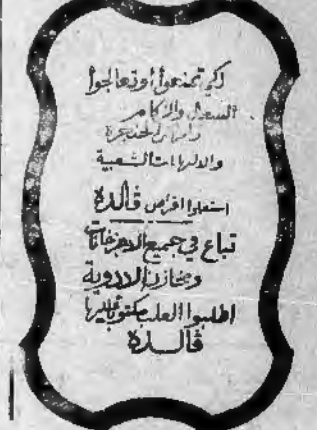 لكي تمنعوا أو تعالجوا
السعال والزكام
وأمراض الحنجرة
والالتهابات الشعبية
استعملوا اقراص ڤالدة
تباع في جميع الاجزخانات
ومخازن الادوية
اطلبوا العلب مكتوب عليها
ڤالدة